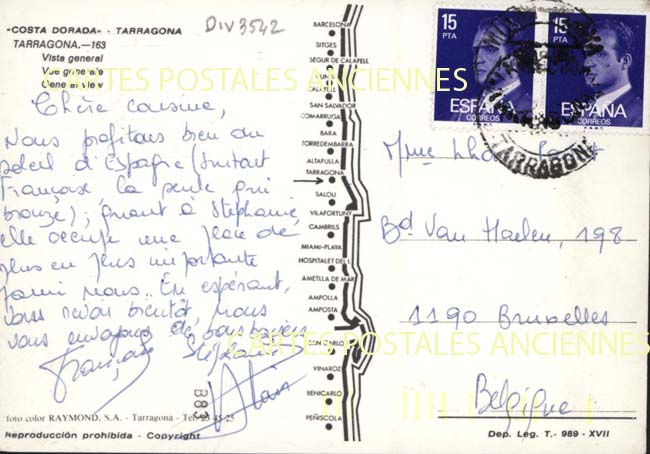 "COSTA DORADA" - TARRAGONA
DIV3542
TARRAGONA.—163
Vista general
Vue generale
General view
CARTES POSTALES ANCIENNES
Chère cousine,
Nous profitons bien du
soleil d'Espagne (surtout
Françoise la seule qui
bronze); quant à Stéphanie,
elle occupe une place de
plus en plus importante
parmi nous. En espérant
vous revoir bientôt, nous
vous envoyons de bons baisers
Françoise Stéphanie
Alain
foto color RAYMOND, S.A. - Tarragona - Tel. 23 45 25
Reproducción prohibida - Copyright
B83
BARCELONA
SITGES
SEGUR DE CALAFELL
CALAFELL
SAN SALVADOR
COMARRUGA
BARA
TORREDEMBARRA
ALTAFULLA
TARRAGONA
SALOU
VILAFORTUNY
CAMBRILS
MIAMI-PLAYA
HOSPITALET DEL I.
AMETLLA DE MAR
AMPOLLA
AMPOSTA
SAN CARLOS
VINAROZ
BENICARLO
PEÑISCOLA
15 PTA
ESPAÑA
CORREOS
15 PTA
ESPAÑA
CORREOS
TARRAGONA
Mme
Bd Van Haelen, 198
1190 Bruxelles
CARTES POSTALES ANCIENNES
Belgique
Dep. Leg. T.- 969 - XVII